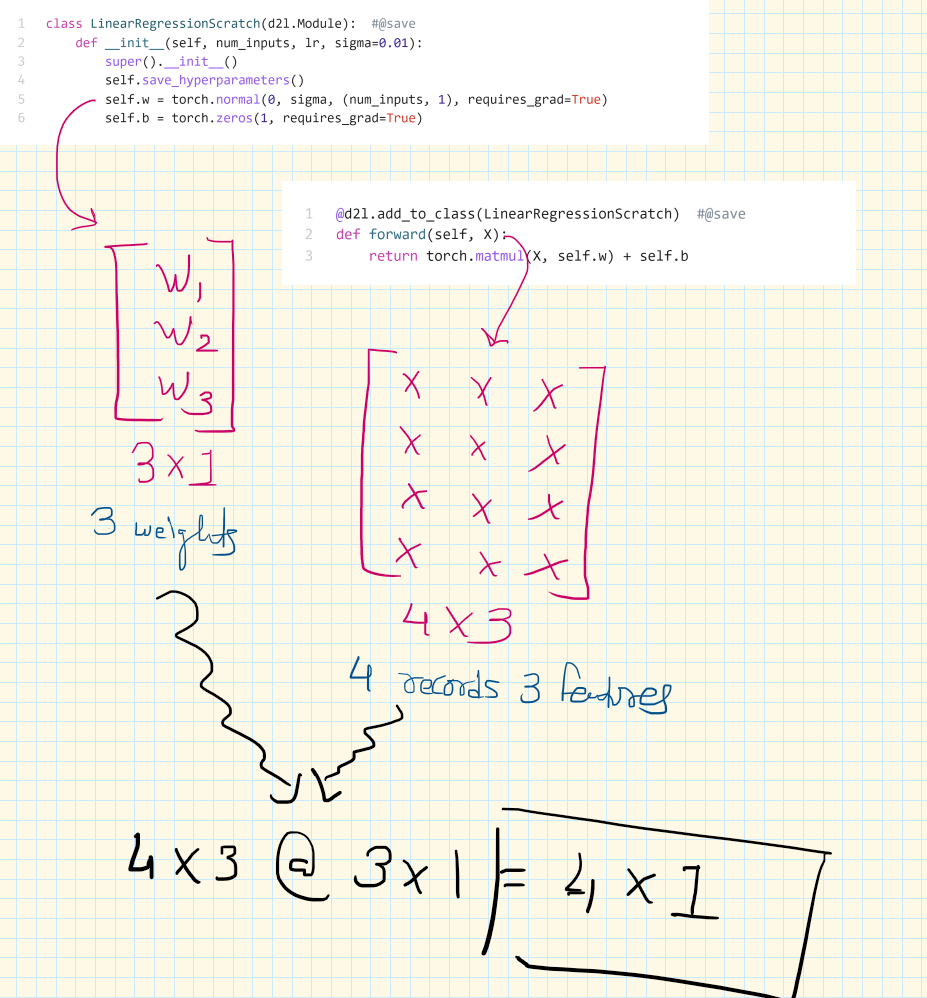 1 class LinearRegressionScratch(d2l.Module): #@save
2 def __init__(self, num_inputs, lr, sigma=0.01):
3 super().__init__()
4 self.save_hyperparameters()
5 self.w = torch.normal(0, sigma, (num_inputs, 1), requires_grad=True)
6 self.b = torch.zeros(1, requires_grad=True)
1 @d2l.add_to_class(LinearRegressionScratch) #@save
2 def forward(self, X):
3 return torch.matmul(X, self.w) + self.b
w1
w2
w3
3 x 1
3 weights
x x x
x x x
x x x
x x x
4 x 3
4 records 3 features
4 x 3 @ 3 x 1 = 4 x 1